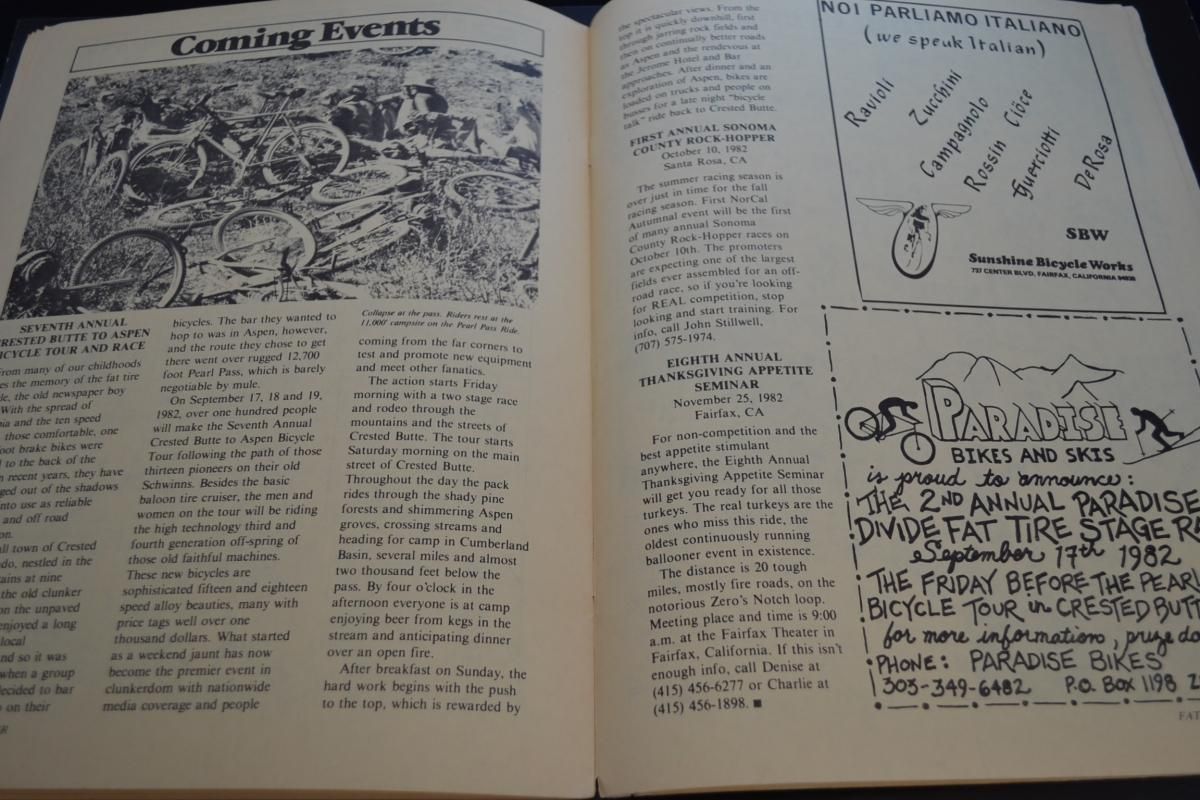 Coming Events
Collapse at the pass. Riders rest at the
11,000' campsite on the Pearl Pass Ride.
SEVENTH ANNUAL
CRESTED BUTTE TO ASPEN
BICYCLE TOUR AND RACE
From many of our childhoods
the memory of the fat tire
the old newspaper boy
With the spread of
and the ten speed
those comfortable, one
foot brake bikes were
to the back of the
n recent years, they have
out of the shadows
into use as reliable
and off road
town of Crested
nestled in the
at nine
the old clunker
on the unpaved
enjoyed a long
local
nd so it was
when a group
decided to bar
on their
bicycles. The bar they wanted to
hop to was in Aspen, however,
and the route they chose to get
there went over rugged 12,700
foot Pearl Pass, which is barely
negotiable by mule.
On September 17, 18 and 19,
1982, over one hundred people
will make the Seventh Annual
Crested Butte to Aspen Bicycle
Tour following the path of those
thirteen pioneers on their old
Schwinns. Besides the basic
baloon tire cruiser, the men and
women on the tour will be riding
the high technology third and
fourth generation off-spring of
those old faithful machines.
These new bicycles are
sophisticated fifteen and eighteen
speed alloy beauties, many with
price tags well over one
thousand dollars. What started
as a weekend jaunt has now
become the premier event in
clunkerdom with nationwide
media coverage and people
coming from the far corners to
test and promote new equipment
and meet other fanatics.
The action starts Friday
morning with a two stage race
and rodeo through the
mountains and the streets of
Crested Butte. The tour starts
Saturday morning on the main
street of Crested Butte.
Throughout the day the pack
rides through the shady pine
forests and shimmering Aspen
groves, crossing streams and
heading for camp in Cumberland
Basin, several miles and almost
two thousand feet below the
pass. By four o'clock in the
afternoon everyone is at camp
enjoying beer from kegs in the
stream and anticipating dinner
over an open fire.
After breakfast on Sunday, the
hard work begins with the push
to the top, which is rewarded by
the spectacular views. From the
top it is quickly downhill, first
through jarring rock fields and
then on continually better roads
as Aspen and the rendevous at
the Jerome Hotel and Bar
approaches. After dinner and an
exploration of Aspen, bikes are
loaded on trucks and people on
busses for a late night "bicycle
talk" ride back to Crested Butte.
FIRST ANNUAL SONOMA
COUNTY ROCK-HOPPER
October 10, 1982
Santa Rosa, CA
The summer racing season is
over just in time for the fall
racing season. First NorCal
Autumnal event will be the first
of many annual Sonoma
County Rock-Hopper races on
October 10th. The promoters
are expecting one of the largest
fields ever assembled for an off-
road race, so if you're looking
for REAL competition, stop
looking and start training. For
info, call John Stillwell,
(707) 575-1974.
EIGHTH ANNUAL
THANKSGIVING APPETITE
SEMINAR
November 25, 1982
Fairfax, CA
For non-competition and the
best appetite stimulant
anywhere, the Eighth Annual
Thanksgiving Appetite Seminar
will get you ready for all those
turkeys. The real turkeys are the
ones who miss this ride, the
oldest continuously running
ballooner event in existence.
The distance is 20 tough
miles, mostly fire roads, on the
notorious Zero's Notch loop.
Meeting place and time is 9:00
a.m. at the Fairfax Theater in
Fairfax, California. If this isn't
enough info, call Denise at
(415) 456-6277 or Charlie at
(415) 456-1898. ■
NOI PARLIAMO ITALIANO
(we speak Italian)
Ravioli
Zucchini
Campagnolo
Rossin
Ciöce
Guerciotti
DeRosa
SBW
Sunshine Bicycle Works
737 CENTER BLVD, FAIRFAX, CALIFORNIA 94930
PARADISE
BIKES AND SKIS
is proud to announce:
THE 2ND ANNUAL PARADISE
DIVIDE FAT TIRE STAGE R
September 17th 1982
THE FRIDAY BEFORE THE PEARL
BICYCLE TOUR in CRESTED BUTT
for more information, prize
PHONE: PARADISE BIKES
303-349-6482 P.O. BOX 1198
FAT